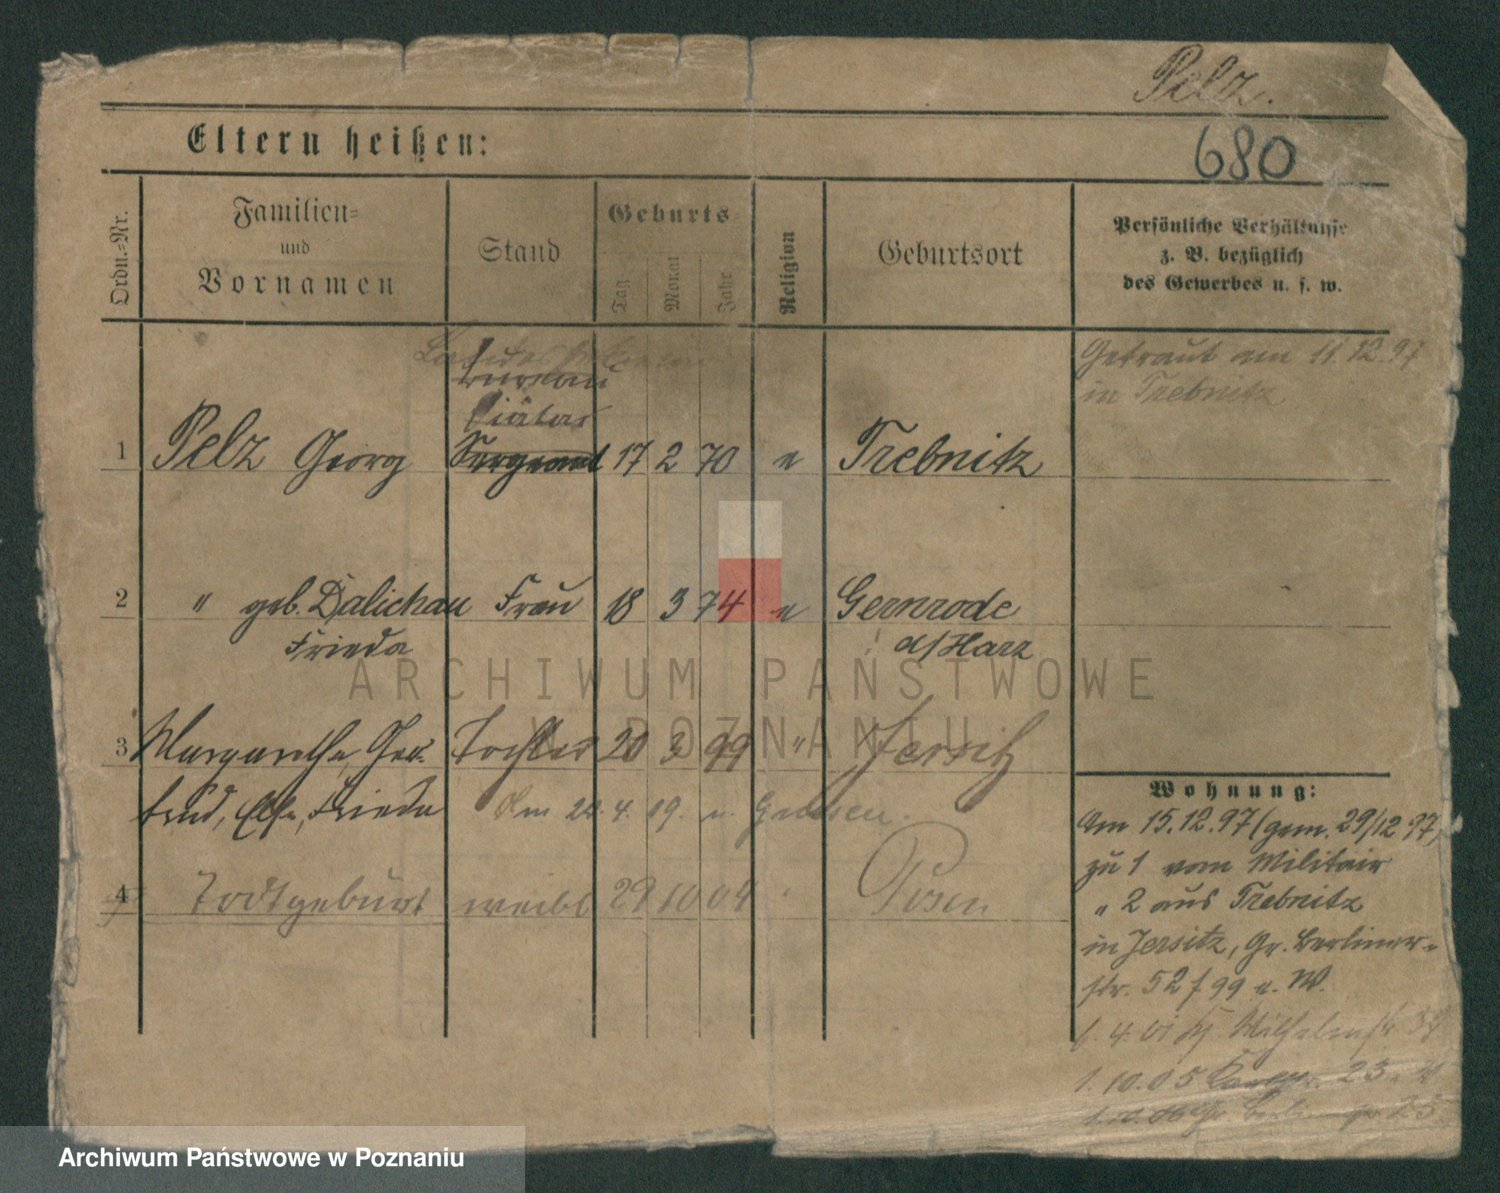 Pelz.
680
Eltern heißen:
Ordn.=Nr.
Familien=
und
Vornamen
Stand
Geburts=
Tag
Monat
Jahr
Religion
Geburtsort
Persönliche Verhältnisse
z. B. bezüglich
des Gewerbes u. s. w.
Getraut am 11.12.97
in Trebnitz
Diätar
1 Pelz Georg Sergeant 17 2 70 e Trebnitz
2 " geb. Dalichau Frau 18 3 74 e Gernrode
Frieda a/Harz
3 Margarethe, Ger- Tochter 20 3 99 " Jersitz
trud, Else, Frieda
4 Todtgeburt weibl 29 10 04 " Posen
Wohnung:
Am 15.12.97 (gem. 29/12 97)
zu 1 vom Militair
" 2 aus Trebnitz
in Jersitz, Gr. Berliner-
str. 52 f 99 u. W.
1.4.01 Wilhelmstr
1.10.05 23
25
ARCHIWUM PAŃSTWOWE
W POZNANIU
Archiwum Państwowe w Poznaniu